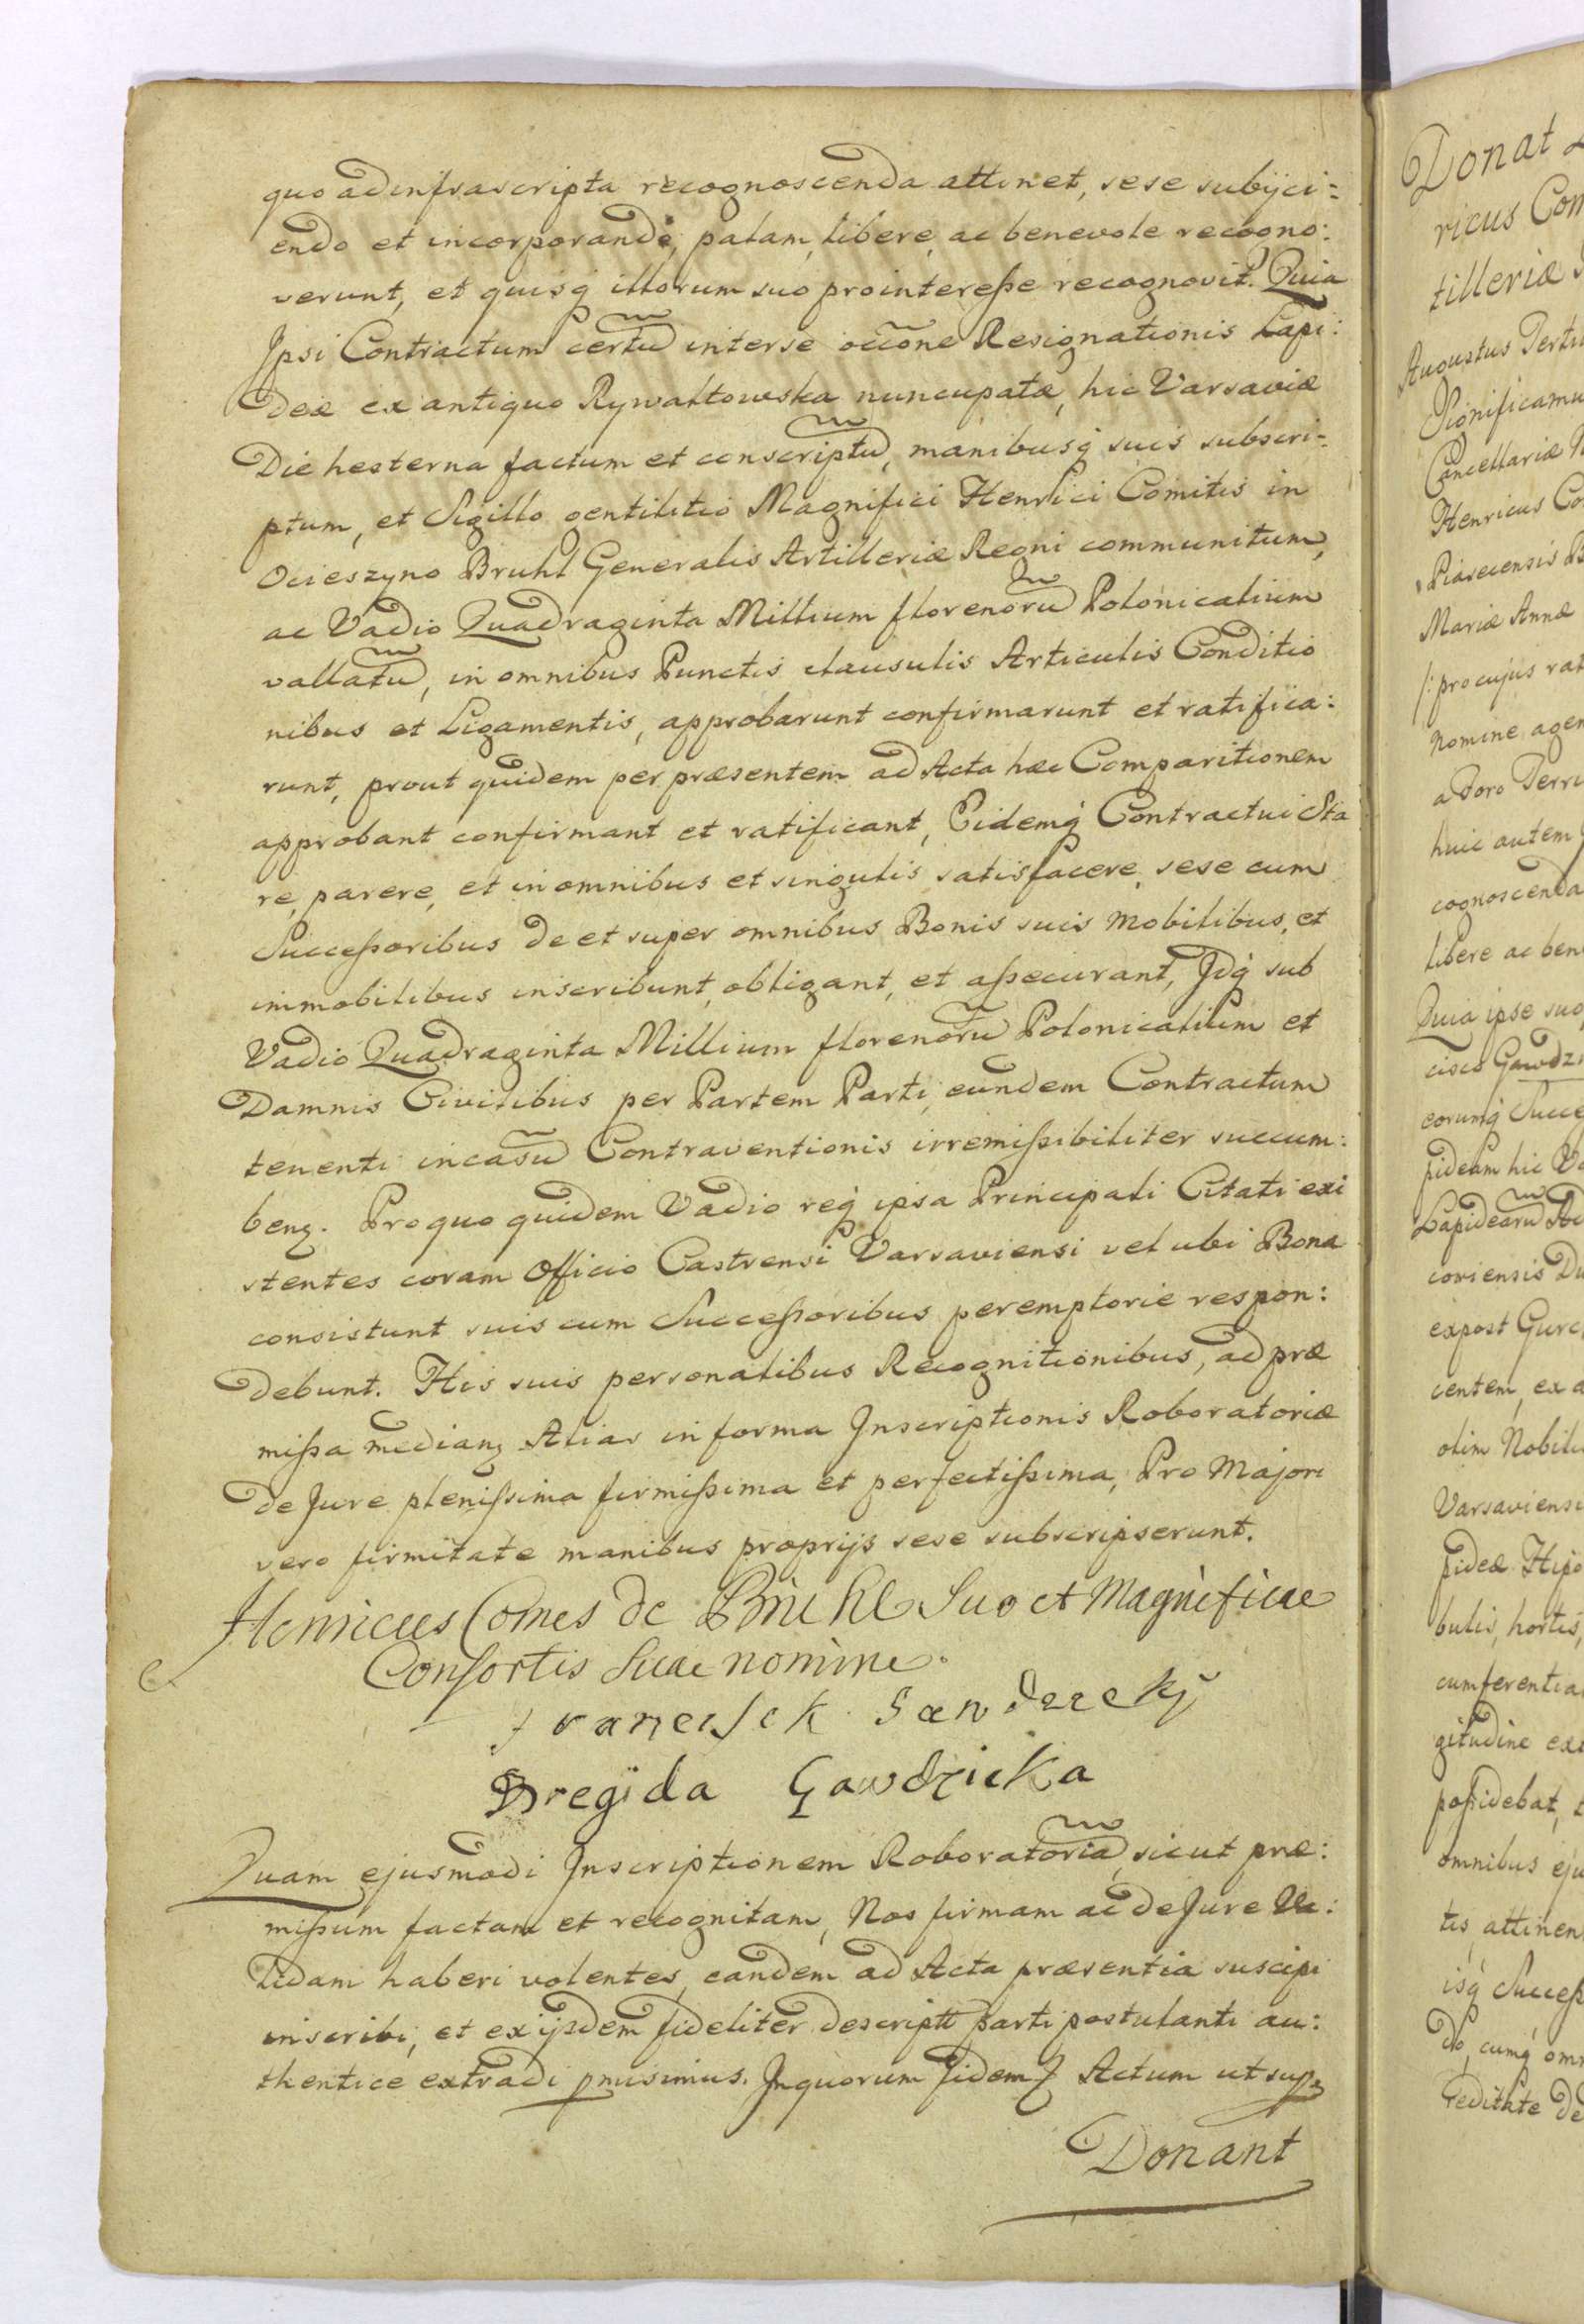 quo ad infrascripta recognoscenda attinet, sese subijci=
endo et incorporando, palam, libere, ac benevole recogno:
verunt, et quisq illorum suo pro interesse recognovit. Quia
Ipsi Contractum certu inter se occõne Resignationis Lapi:
deæ ex antiquo Rywaltowska nuncupatæ, hic Varsaviæ
Die hesterna factum et conscriptu, manibusq suis subscri=
ptum, et Sigillo gentilitio Magnifici Henrici Comitis in
Ocieszyno Bruhl Generalis Artilleriæ Regni communitum,
ac Vadio Quadraginta Millium florenoru Polonicalium
vallatu, in omnibus Punctis clausulis Articulis Conditio
nibus et Ligamentis, approbarunt confirmarunt et ratifica:
runt, prout quidem per præsentem ad Acta hæc Comparitionem
approbant confirmant et ratificant, Eidemq Contractui Sta
re, parere, et in omnibus et singulis satisfacere, sese cum
Successoribus de et super omnibus Bonis suis mobilibus, et
immobilibus inscribunt, obligant, et assecurant, Idq sub
Vadio Quadraginta Millium florenoru Polonicalium et
Damnis Civilibus per Partem Parti, eundem Contractum
tenenti in casu Contraventionis irremissibiliter succum:
benz. Pro quo quidem Vadio req ipsa Principali Citati exi
stentes coram Officio Castrensi Varsaviensi vel ubi Bona
consistunt suis cum Successoribus peremptorie respon:
debunt. His suis personalibus Recognitionibus, ad præ
missa medianz. Alias in forma Inscriptionis Roboratoriæ
de Jure plenissima firmissima et perfectissima, Pro Majori
vero firmitate manibus proprijs sese subscripserunt.
Henricus Comes de Brühl Suo et Magnificae
Consortis Suae nomine.
Bregida Gawdzicka
Quam ejusmodi Inscriptionem Roboratoria, sicut præ:
missum factam et recognitam, Nos firmam ac de Jure Va:
lidam haberi volentes, eandem ad Acta præsentia suscipi
inscribi, et ex ijsdem fideliter descriptt Parti postulanti au:
thentice extradi pmisimus. In quorum fidem Actum ut sup
Donant
Donat
ricus Com
tilleriæ
Augustus Terti
Significamu
Cancellariæ
Henricus Co
Piasecensis B
Mariæ Annæ
/: pro cujus rat
nomine agen
a Foro Terr
huic autem
cognoscenda
libere ac ben
Quia ipse suo
cisco Gawdz
eorumq Succe
pideam hic Va
Lapidearu
coviensis Du
expost Gurc
centem, ex a
olim Nobili
Varsaviensi
pideæ Hipo
bulis, hortis,
cumferentia
gitudine ext
possidebat,
omnibus eju
tis, attinen
isq Success
do, cumq omn
reditate de